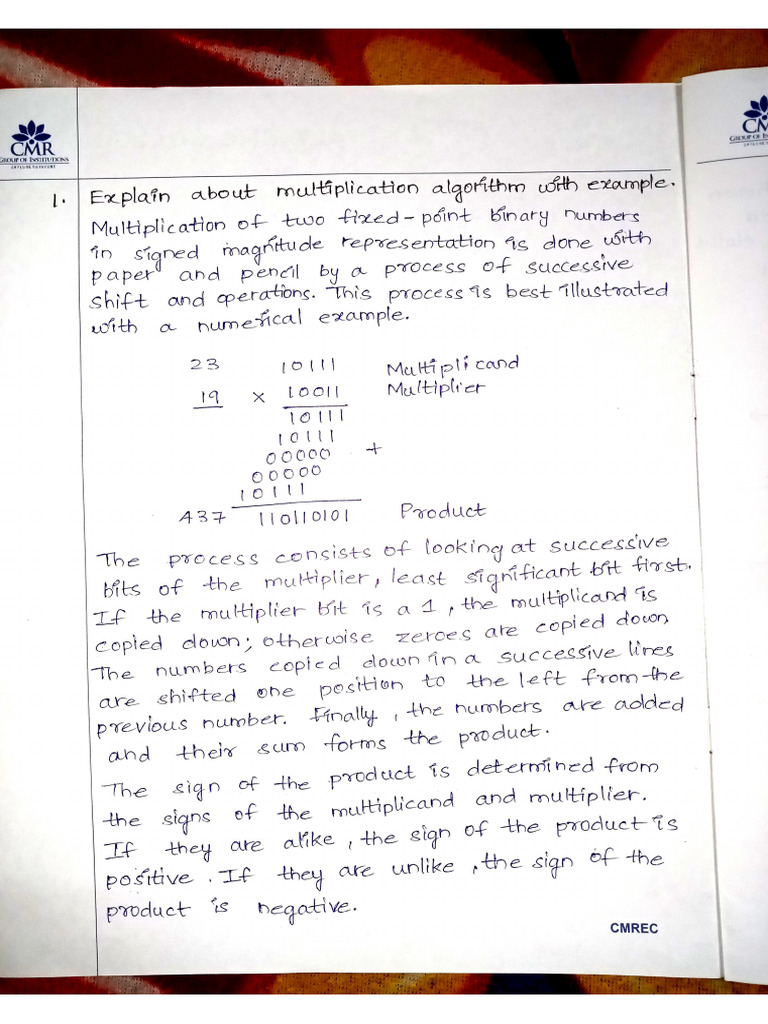 CMR
GROUP OF INSTITUTIONS
EXPLORE TO INVENT
1. Explain about multiplication algorithm with example.
Multiplication of two fixed-point binary numbers
in signed magnitude representation is done with
paper and pencil by a process of successive
shift and operations. This process is best illustrated
with a numerical example.
23 10111 Multiplicand
19 × 10011 Multiplier
10111
10111
00000 +
00000
10111
437 110110101 Product
The process consists of looking at successive
bits of the multiplier, least significant bit first.
If the multiplier bit is a 1, the multiplicand is
copied down; otherwise zeroes are copied down
The numbers copied down in a successive lines
are shifted one position to the left from the
previous number. Finally, the numbers are added
and their sum forms the product.
The sign of the product is determined from
the signs of the multiplicand and multiplier.
If they are alike, the sign of the product is
positive. If they are unlike, the sign of the
product is negative.
CMREC